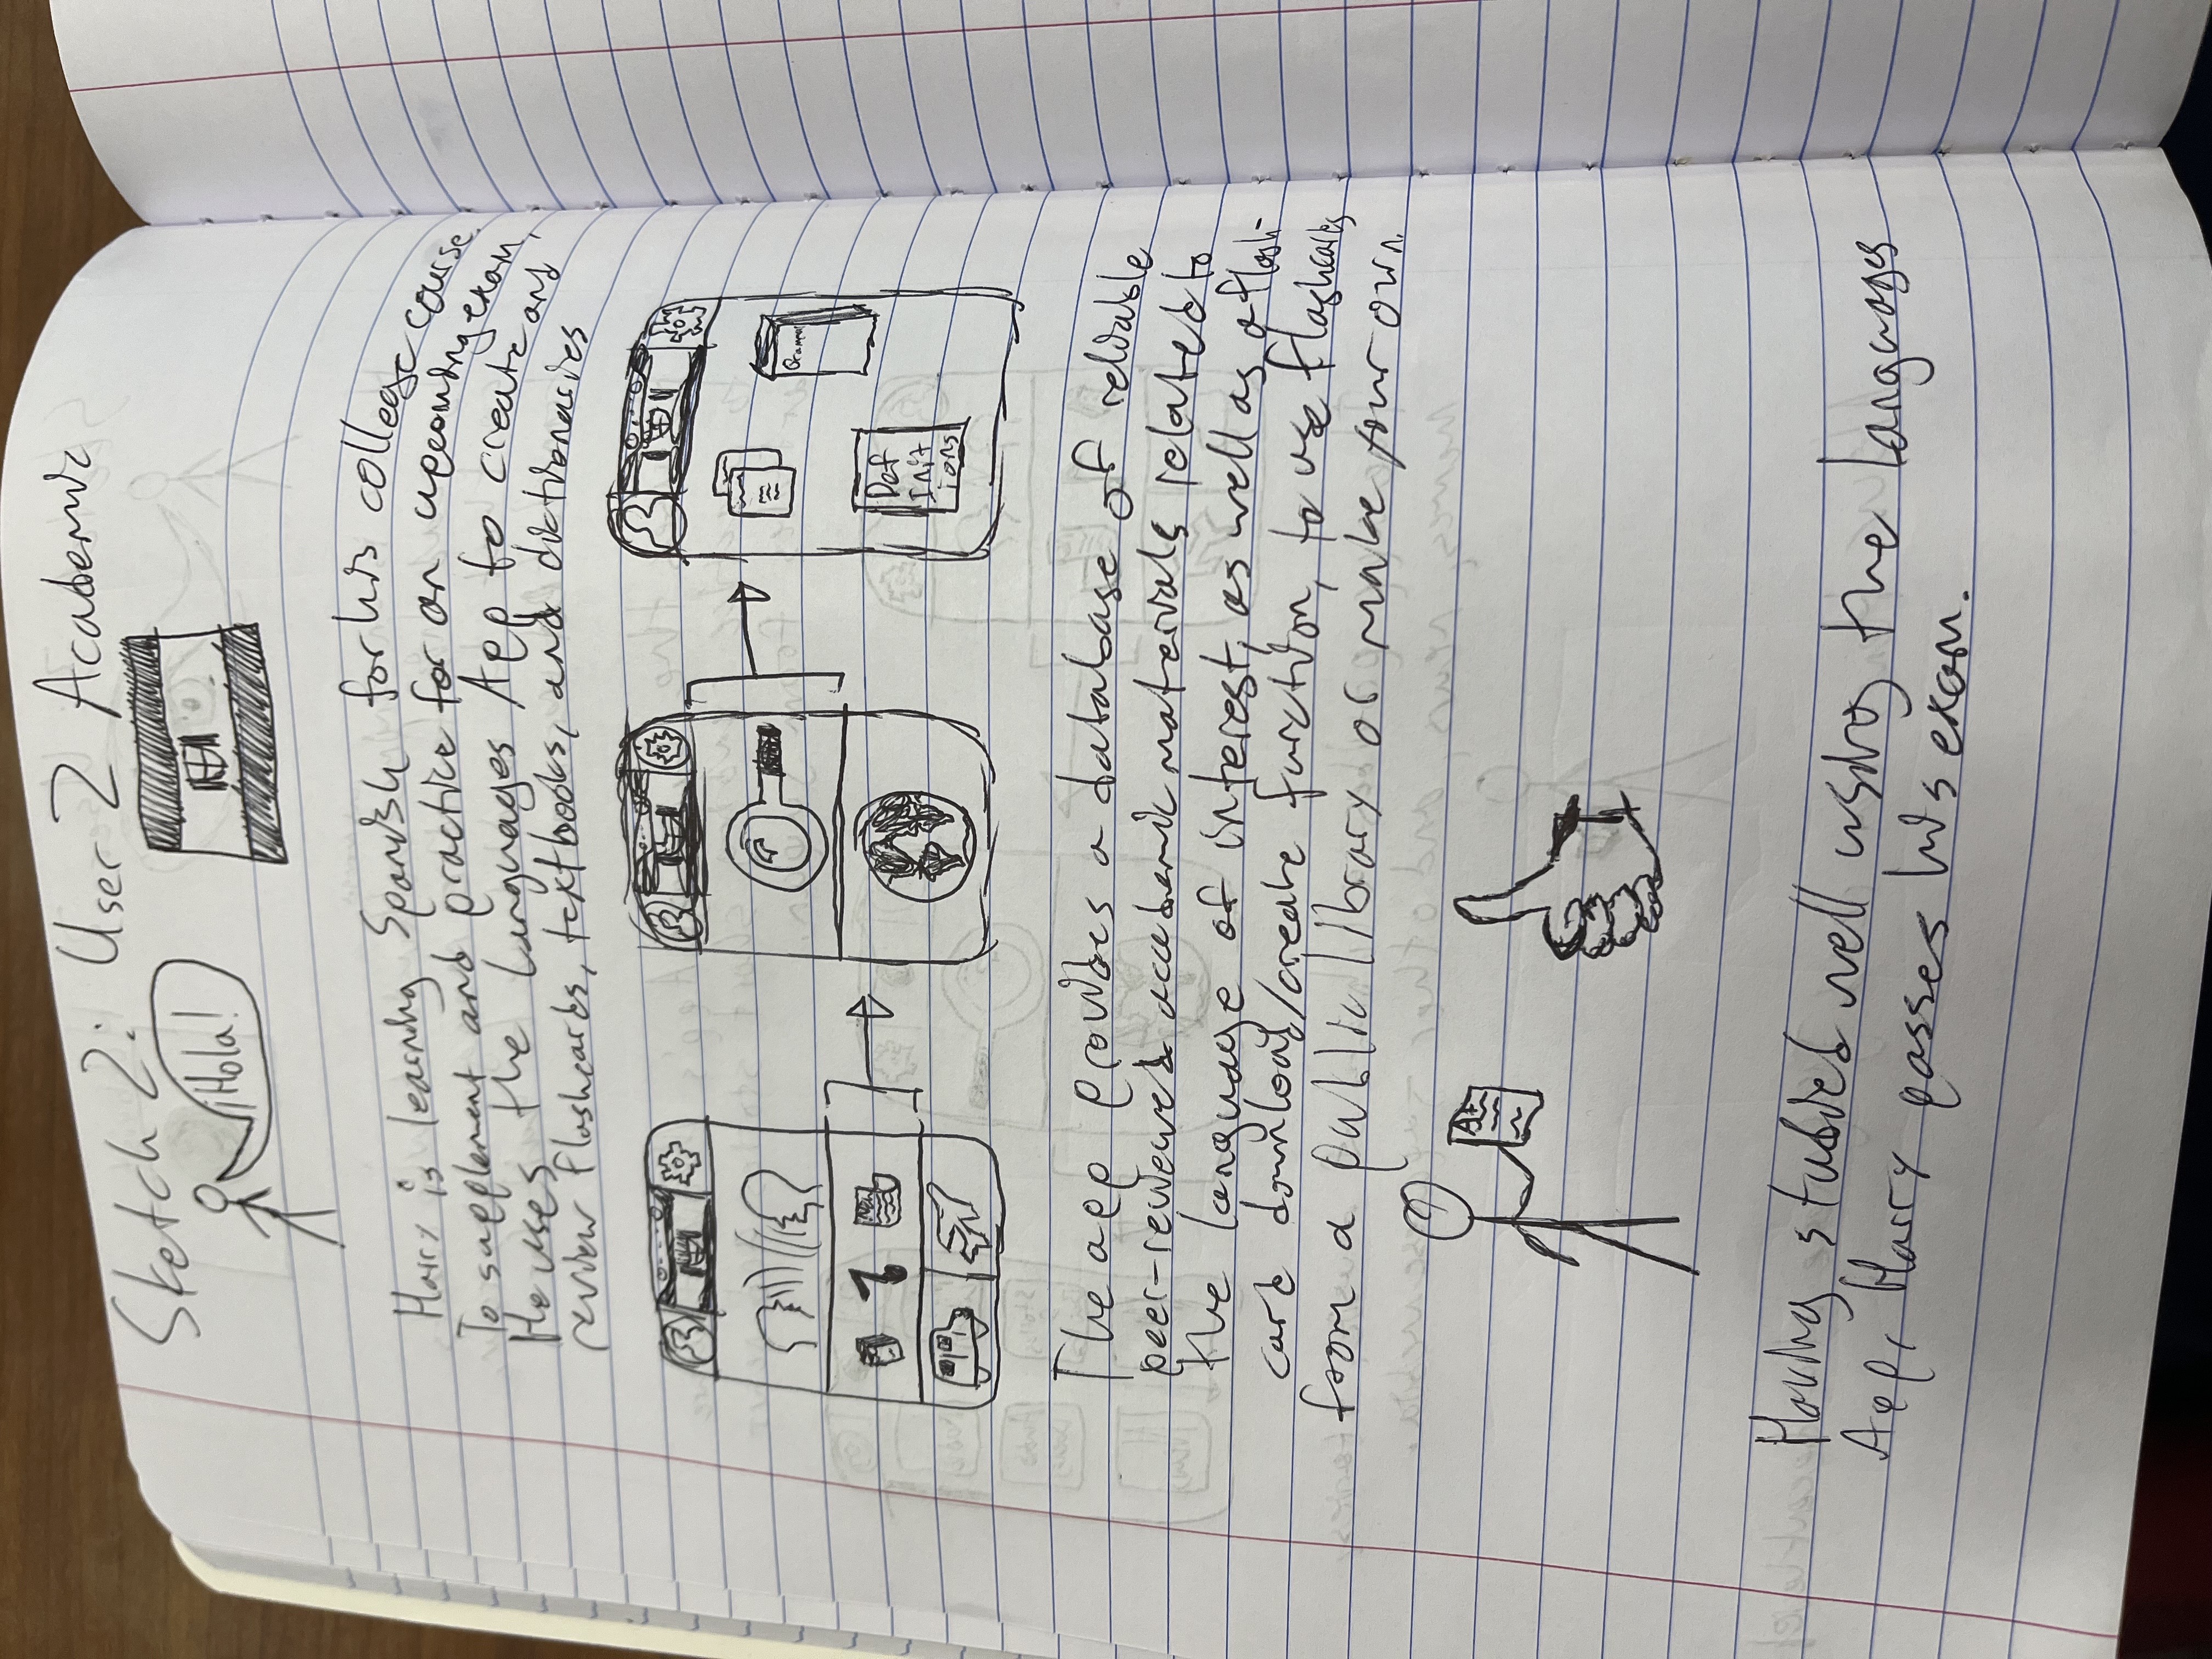 Sketch 2: User 2 Academic
¡Hola!
Harry is learning Spanish for his college course.
To supplement and practice for an upcoming exam,
He uses the Languages App to create and
review flashcards, textbooks, and dictionaries
Grammar
Def
Init
ions
The app provides a database of reliable
peer-reviewed academic materials related to
the language of interest, as well as a flash-
card download/create function, to use flashcards
from a public library or make your own.
A+
Having studied well using the Languages
App, Harry passes his exam.